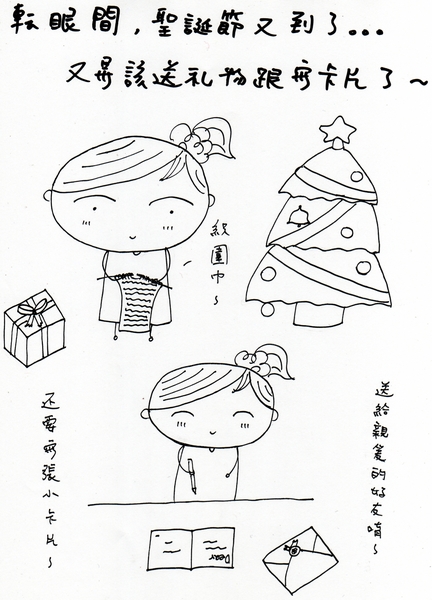 転眼間，聖誕節又到了...
又是該送礼物跟寫卡片了～
織圍巾～
还要寫張小卡片～
送給親愛的好友唷～
Dear